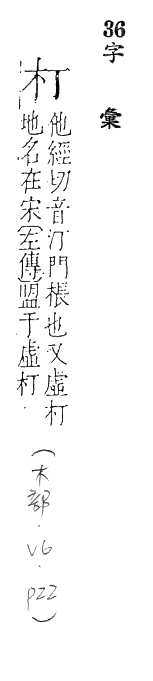 36字 彙
朾
他經切音汀門棖也又虛朾
地名在宋左傳盟于虛朾
(木部.V6.P22)